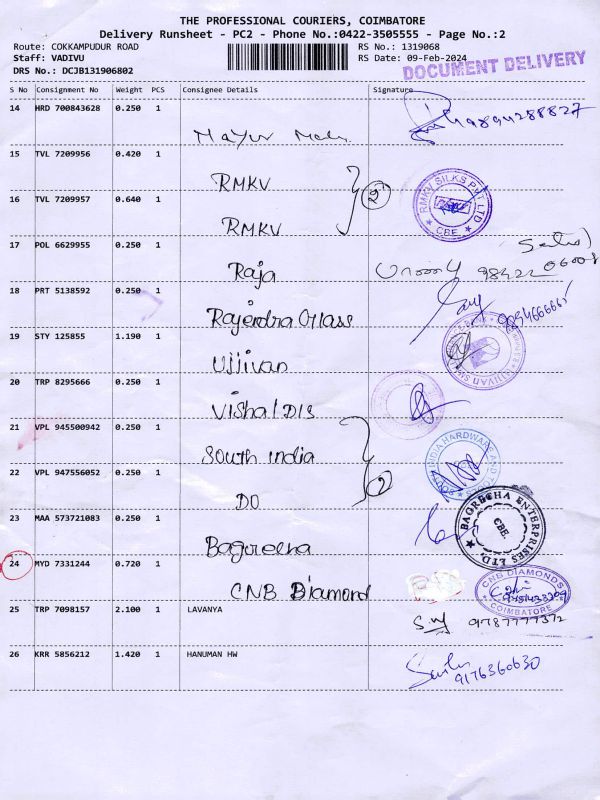 THE PROFESSIONAL COURIERS, COIMBATORE
Delivery Runsheet - PC2 - Phone No.:0422-3505555 - Page No.:2
Route: COKKAMPUDUR ROAD RS No.: 1319068
Staff: VADIVU RS Date: 09-Feb-2024
DOCUMENT DELIVERY
DRS No.: DCJB131906802
S No Consignment No Weight PCS Consignee Details Signature
14 HRD 700843628 0.250 1
Mayur 9894288827
15 TVL 7209956 0.420 1
RMKV 2
16 TVL 7209957 0.640 1
RMKV
RMKV SILKS PVT LTD CBE.
17 POL 6629955 0.250 1
Raja 98422 06008
18 PRT 5138592 0.250 1
Rajendra Glass 9894666661
19 STY 125855 1.190 1
Ujjivan
20 TRP 8295666 0.250 1
Vishal DIS
21 VPL 945500942 0.250 1
South india
SOUTH INDIA HARDWARE AND
22 VPL 947556052 0.250 1
DO
23 MAA 573721083 0.250 1
Bagreena
BAGRECHA ENTERPRISES LTD. CBE.
24 MYD 7331244 0.720 1
CNB Diamond
CNB DIAMONDS COIMBATORE
25 TRP 7098157 2.100 1 LAVANYA
9787777372
26 KRR 5856212 1.420 1 HANUMAN HW
9176360630